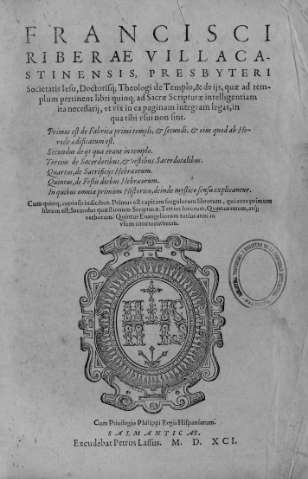 FRANCISCI
RIBERAE VILLACA-
STINENSIS, PRESBYTERI
Societatis Iesu, Doctorisq; Theologi de Templo, & de ijs, quæ ad tem-
plum pertinent libri quinq; ad Sacræ Scripturæ intelligentiam
ita necessarij, et vix in ea paginam integram legas, in
qua tibi vsui non sint.
Primus est de Fabrica primi templi, & secundi, & eius quod ab He-
rode ædificatum est.
Secundus de ijs quæ erant in templo.
Tertius de Sacerdotibus, & vestibus Sacerdotalibus.
Quartus, de Sacrificijs Hebræorum.
Quintus, de Festis diebus Hebræorum.
In quibus omnia primùm Historicè, deinde mystico sensu explicantur.
Cum quinq; copiosis indicibus. Primus est capitum singulorum librorum, qui ante primum
librum est, Secundus quæstionum Scripturæ, Tertius locorum, Quartus rerum, atq;
verborum: Quintus Euangeliorum totius anni in
vsum concionatorum
IHS
Cum Priuilegio Philippi Regis Hispaniarum.
SALMANTICAE,
Excudebat Petrus Lassus. M. D. XCI.